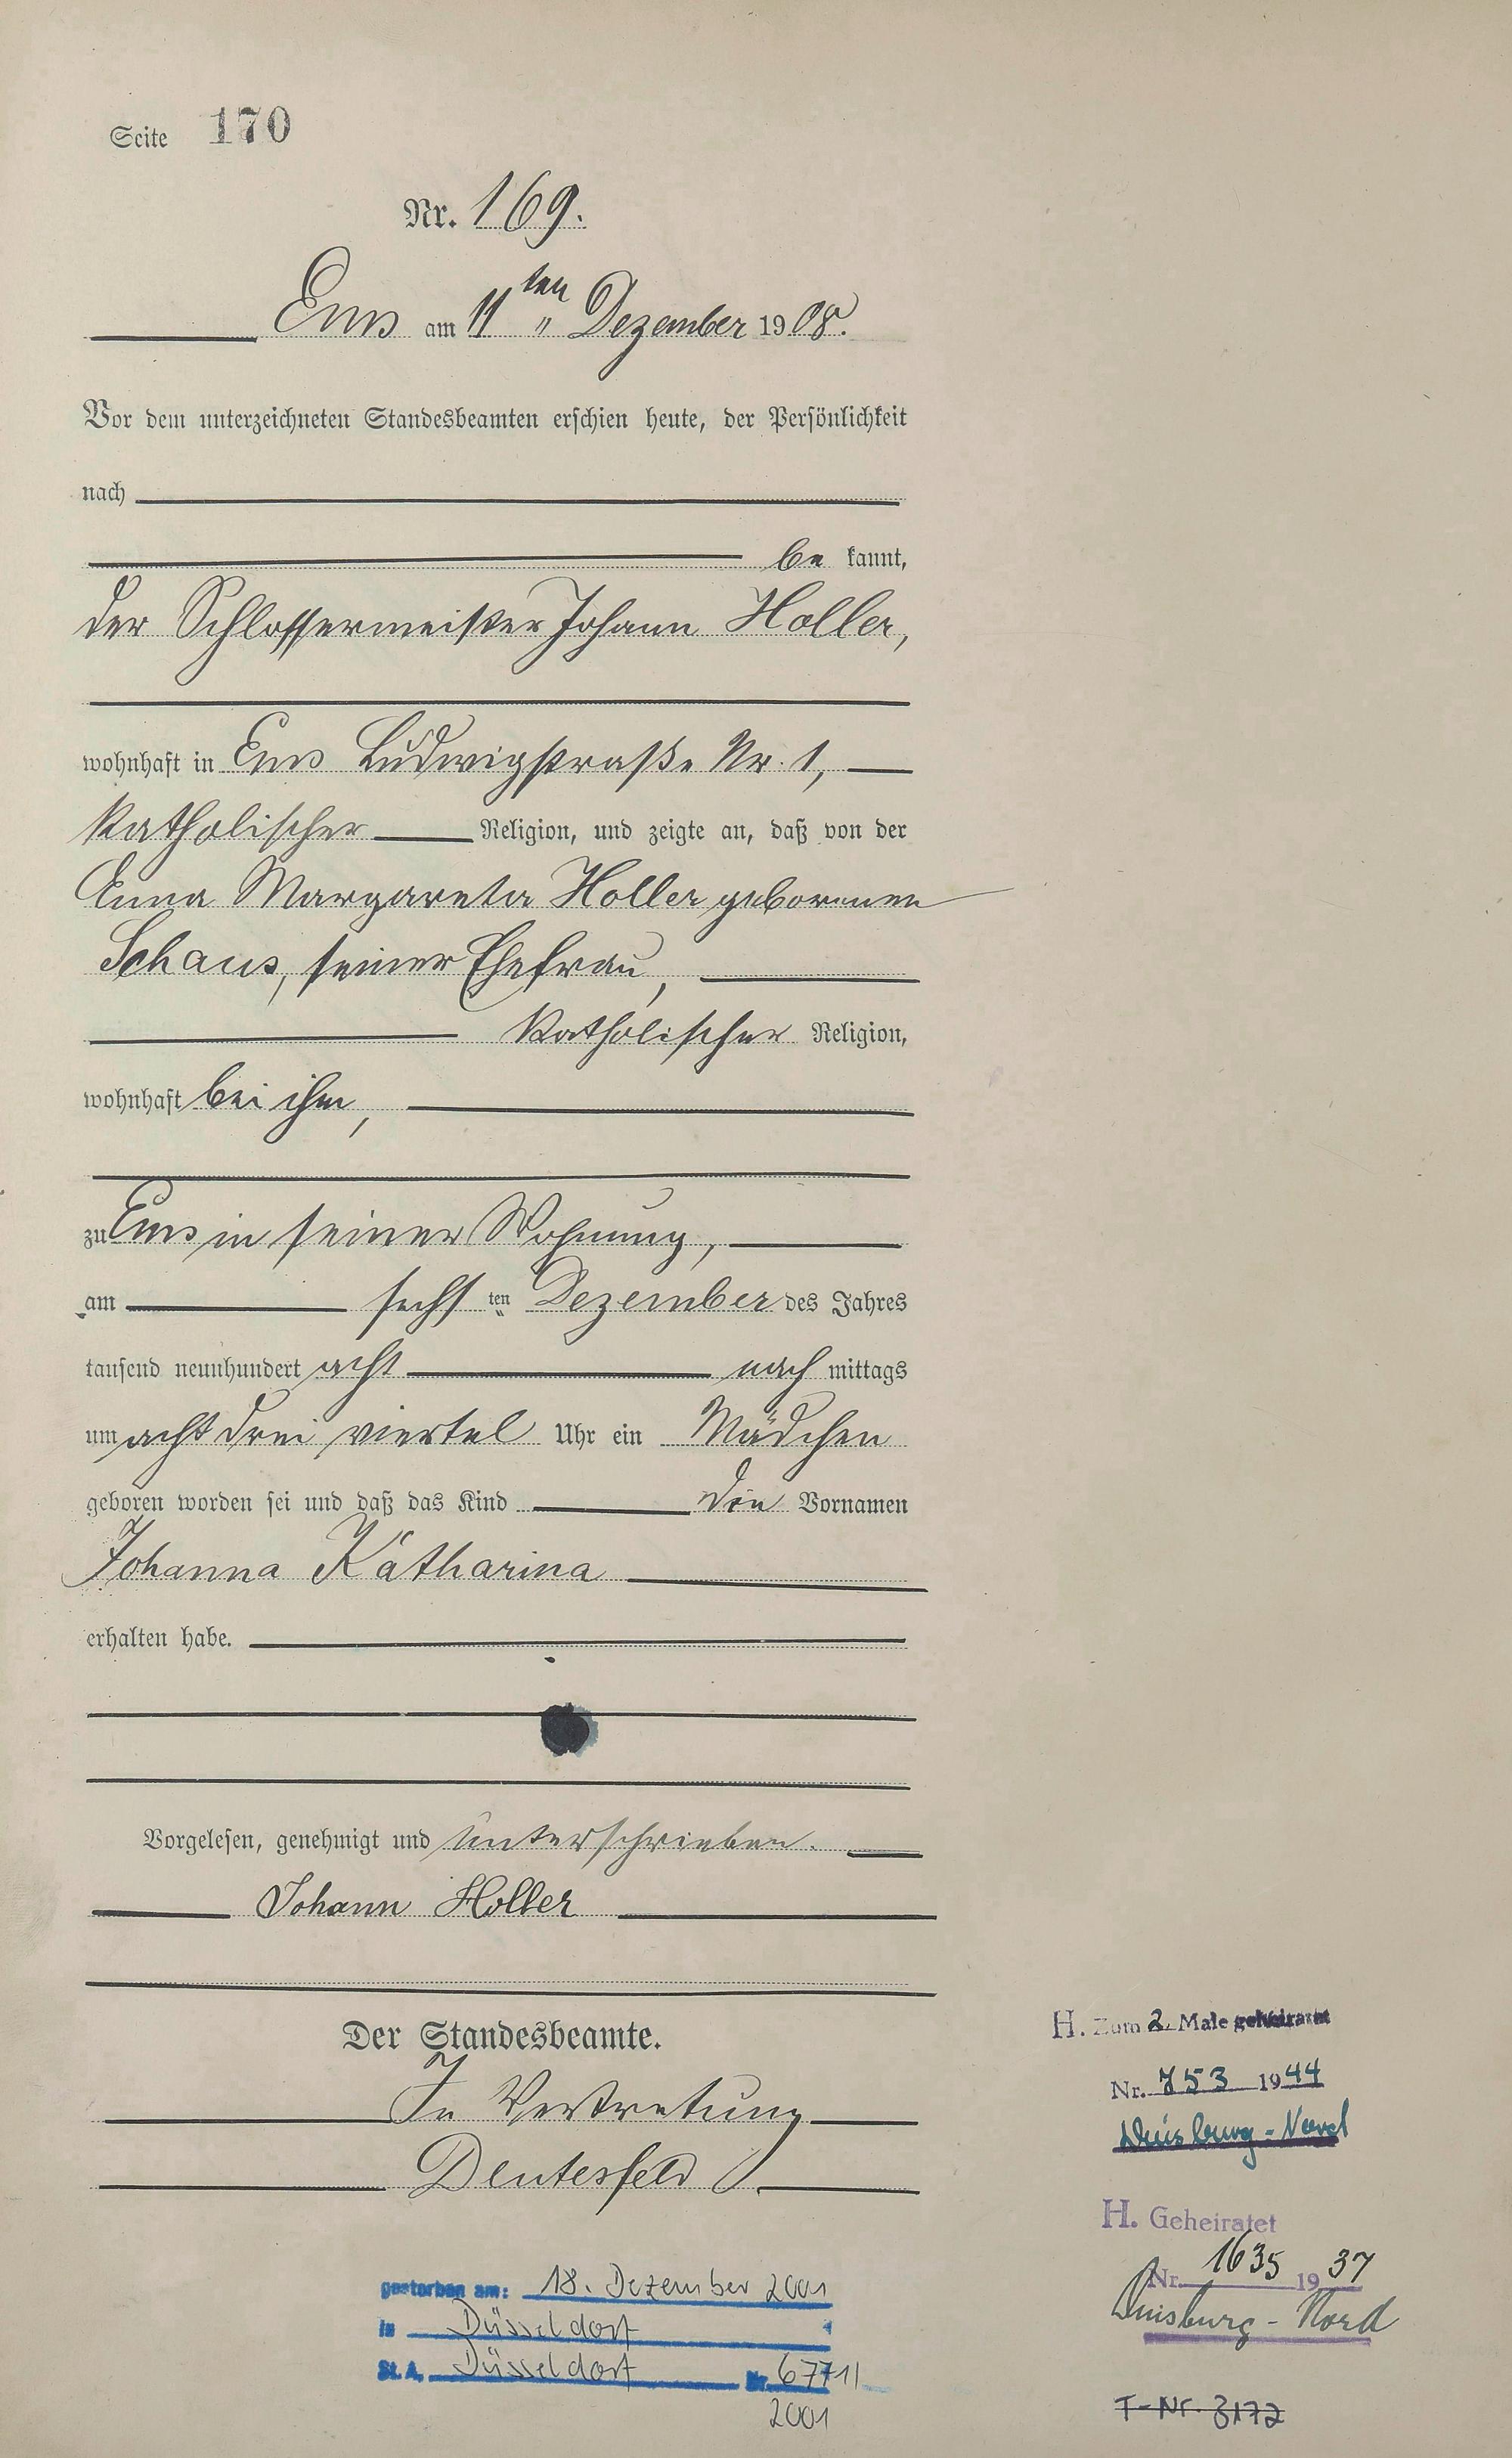 Seite 170
Nr. 169.
Ems am 11ten „ Dezember 1908.
Vor dem unterzeichneten Standesbeamten erschien heute, der Persönlichkeit
nach
be kannt,
der Schlossermeister Johann Holler,
wohnhaft in Ems Ludwigstraße Nr. 1,
katholischer Religion, und zeigte an, daß von der
Anna Margareta Holler geborenen
Schaus, seiner Ehefrau,
katholischer Religion,
wohnhaft bei ihm,
zu Ems in seiner Wohnung,
am sechsten Dezember des Jahres
tausend neunhundert acht nach mittags
um acht drei viertel Uhr ein Mädchen
geboren worden sei und daß das Kind die Vornamen
Johanna Katharina
erhalten habe.
Vorgelesen, genehmigt und unterschrieben.
Johann Holler
Der Standesbeamte.
In Vertretung
H. Zum 2. Male geheiratet
Nr. 753 1944
Duisburg-Nord
H. Geheiratet
Nr. 1635 1937
Duisburg-Nord
T-Nr. 3172
gestorben am: 18. Dezember 2001
in Düsseldorf
St. A. Düsseldorf Nr.
2001